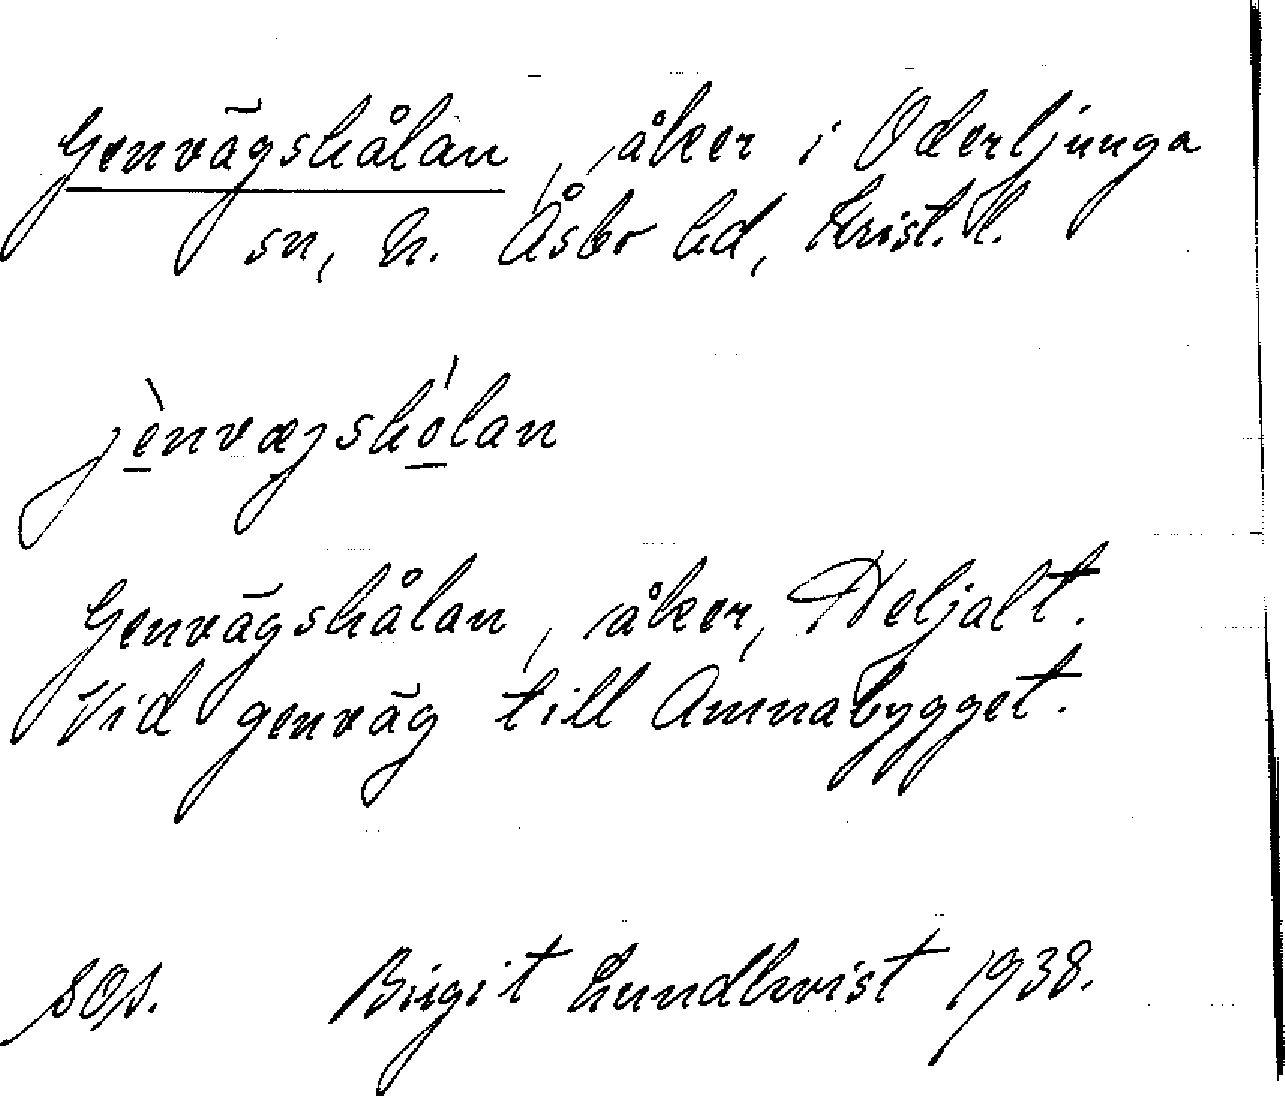 Genvägshålan, åker i Oderljunga
sn, N. Åsbo hd, Krist. l.
jènvæjshólan
Genvägshålan, åker, Heljalt.
Vid genväg till Amnabygget.
SOA. Birgit Lundkvist 1938.